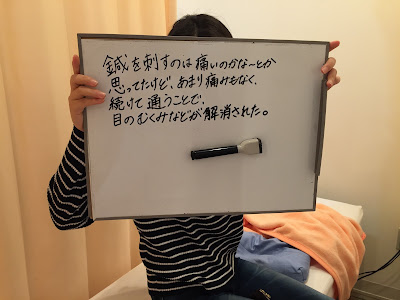 鍼を刺すのは痛いのかな〜とか
思ってたけど、あまり痛みもなく、
続けて通うことで、
目のむくみなどが解消された。